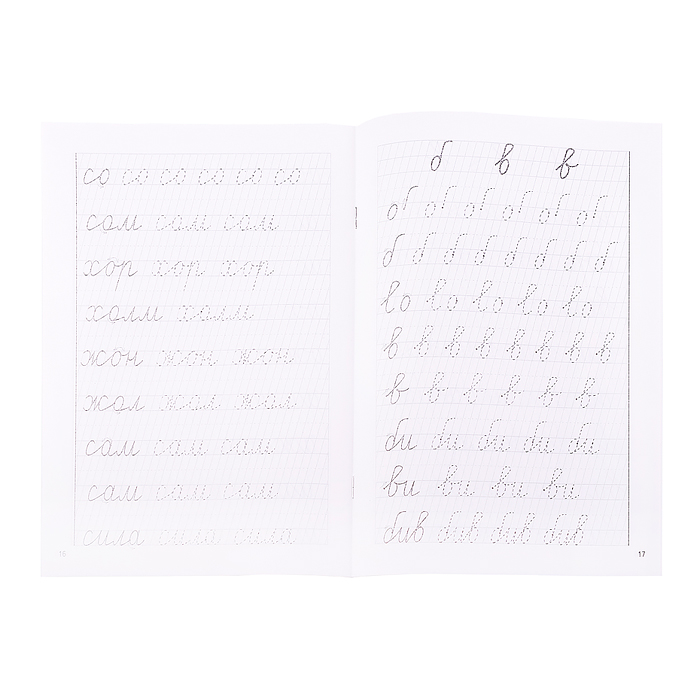 со со со со со со
сом сом сом
хор хор хор
холм холм
жон жон жон
жол жол жол
сом сом сом
сам сам сам
сила сила сила
16
б в в
б б б б б б б
в в в в в в в в
в в в в в в в
би би би би би
ви ви ви ви
бив бив бив бив
17